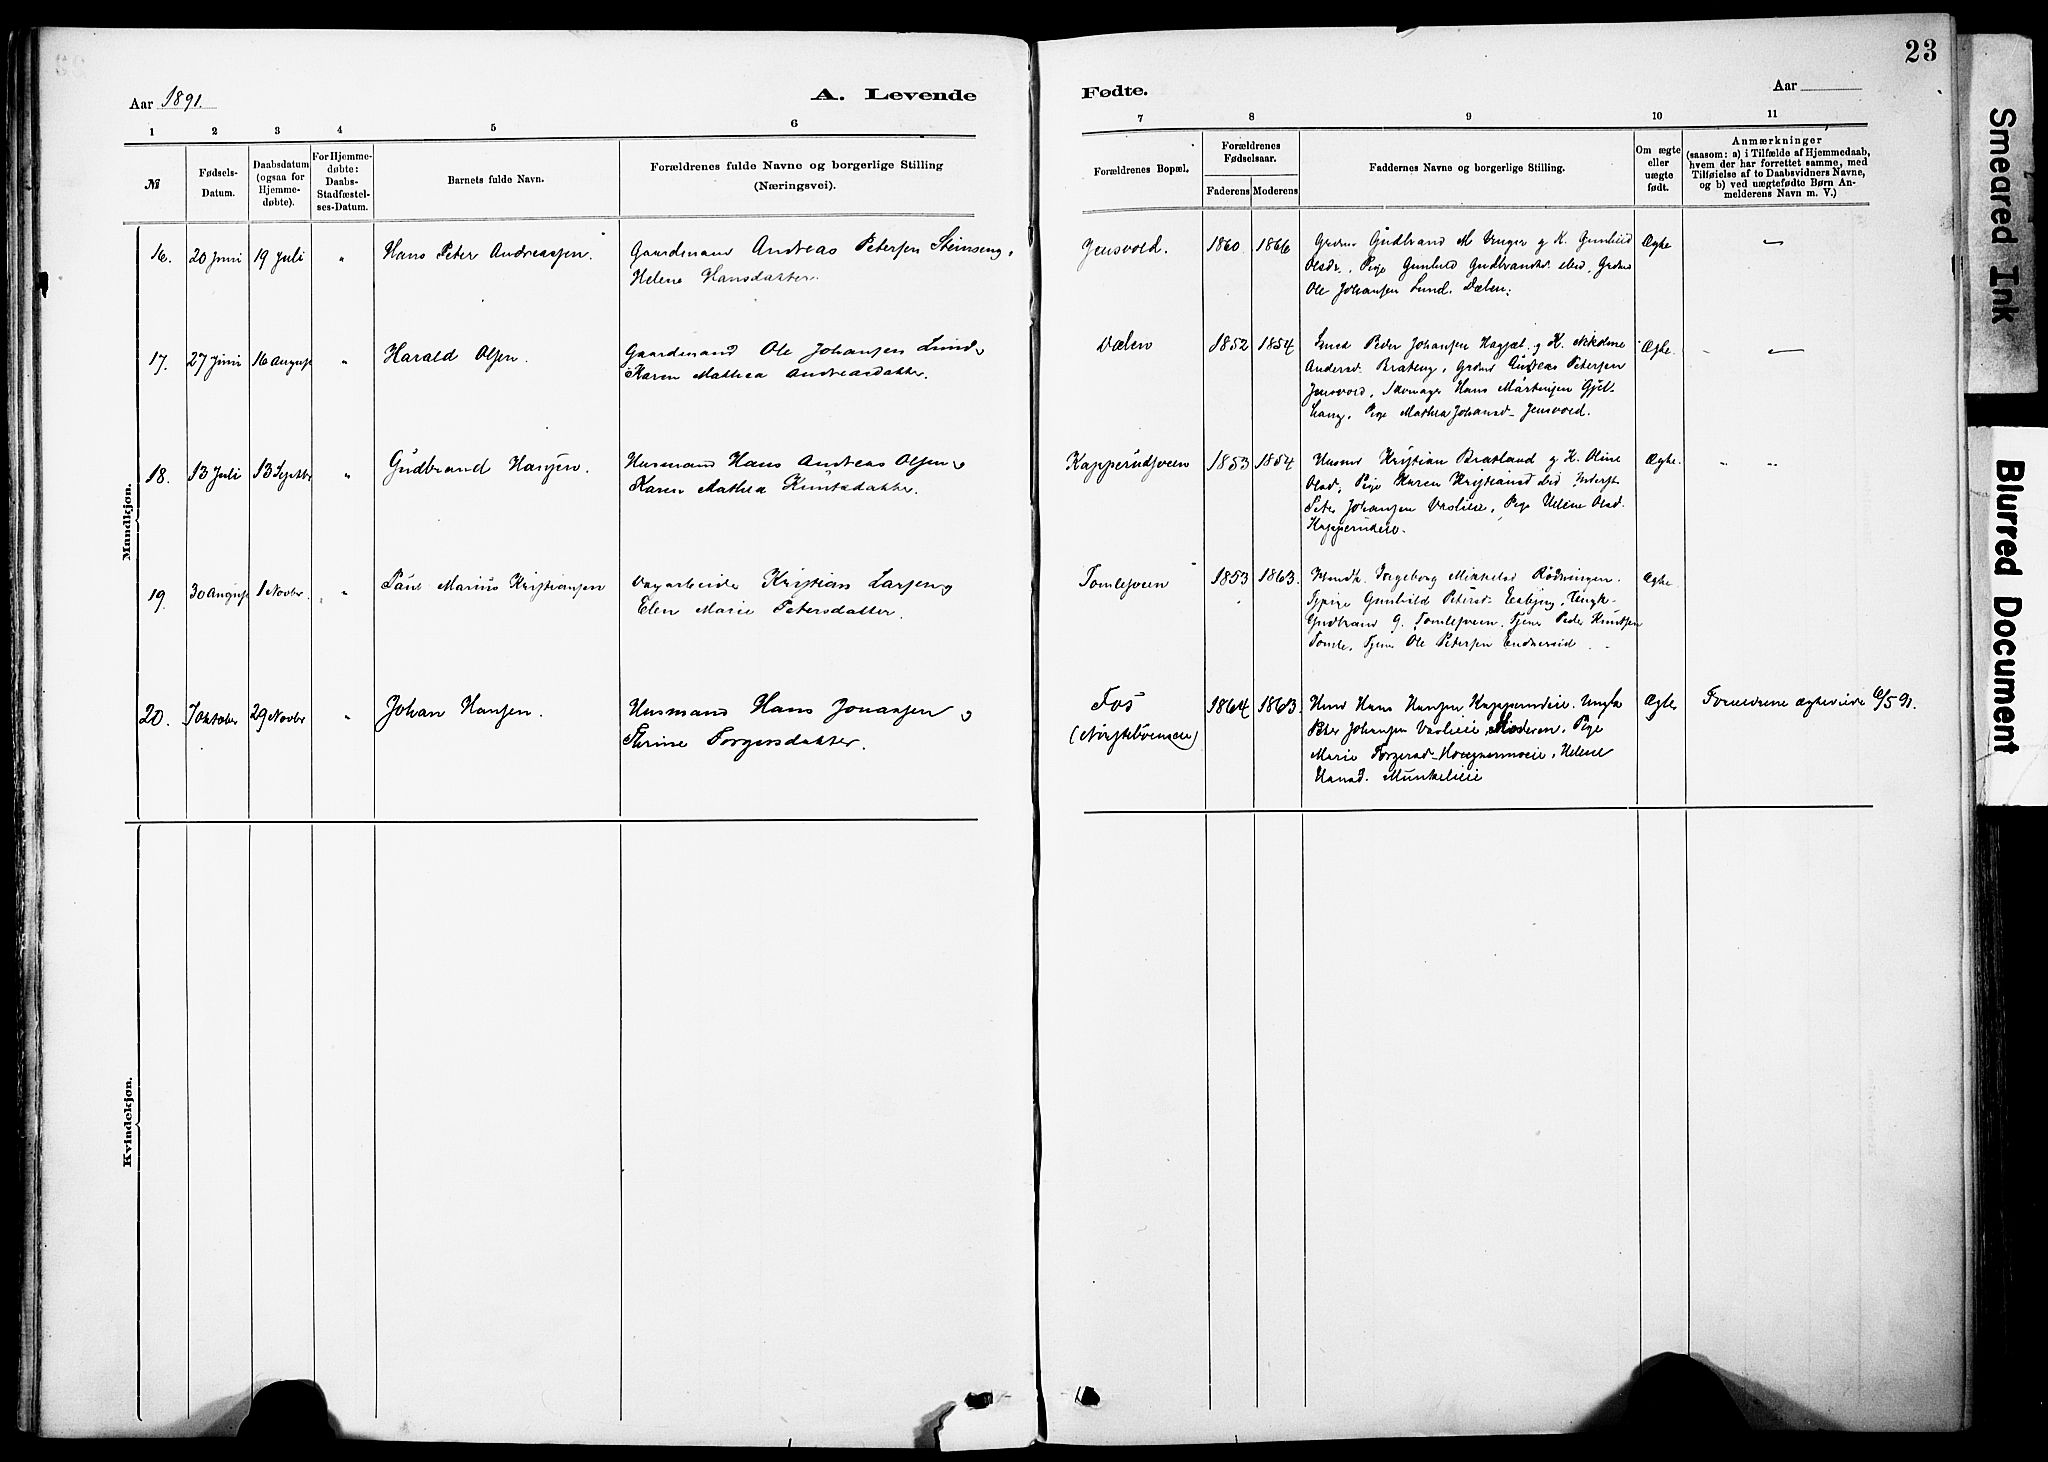 23
Aar 1891.
A. Levende
Fødte.
Aar
1 2 3 4 5 6 7 8 9 10 11
№
Fødsels-
Datum.
Daabsdatum
(ogsaa for
Hjemme-
døbte).
For Hjemme-
døbte:
Daabs-
Stadfæstel-
ses-Datum.
Barnets fulde Navn.
Forældrenes fulde Navne og borgerlige Stilling
(Næringsvei).
Forældrenes Bopæl.
Forældrenes
Fødselsaar.
Faderens Moderens
Faddernes Navne og borgerlige Stilling.
Om ægte
eller
uægte
født.
Anmærkninger
(saasom: a) i Tilfælde af Hjemmedaab,
hvem der har forrettet samme, med
Tilføielse af to Daabsvidners Navne,
og b) ved uægtefødte Børn An-
melderens Navn m. V.)
Mandkjøn.
16. 20 Juni 19 Juli " Hans Peter Andreassen.
Gaardmand Andreas Petersen Steinseng,
Helene Hansdatter.
Jensvold. 1860 1866
Gudbrand M g K. Gunhild
Olsdr., Pige Gunhild Gudbrandsd.
Ole Johansen Lund. Dælen.
Ægte
17. 27 Juni 16 August " Harald Olsen.
Gaardmand Ole Johansen Lund
Karen Mathea Andreasdatter.
Dælen 1852 1854
Peder Johansen g K. Nikoline
Andersd. Brateng, Grdmd Andreas Petersen
Jensvold, Hans Martinsen Gjel-
Pige Mathea Johansd. Jensvold.
Ægte.
18. 13 Juli 13 Septbr " Gudbrand Hansen.
Husmand Hans Andreas Olsen
Karen Mathea Knutsdatter.
Kapperudsveen 1853 1854
Husmd Kristian Bratland g K. Oline
Olsd, Pige Karen Kristiansd
Peter Johansen Pige Helene Olsd.
Kapperudeie.
Ægte. " "
19. 30 August 1 Novbr. " Paul Marius Kristiansen
Kristian Larsen
Elen Marie Petersdatter.
Tomlesveen 1853 1863.
Ingeborg Mikkelsd Rödningen.
Tjpige Gunhild Petersd. Ungk.
Gudbrand G. Tomlesveen. Tjener Peder Knutsen
Tomle, Tjener Ole Petersen Endnerud
Ægte.
20. 7 Oktober 29 Novbr " Johan Hansen.
Husmand Hans Johansen
Thrine Torgersdatter.
Fos 1864 1863.
Husmd Hans Hansen Kapperudeie. Ungk.
Peter Johansen Moderen, Pige
Marie Torgersd. Helene
Hansd. Munkelieie
Ægte Forældrene ægteviede 6/5 91.
Kvindekjøn.
Smeared Ink
Blurred Document